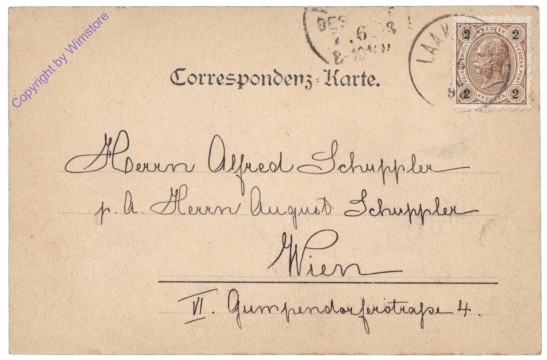 Copyright by Wimstore
BES
7.6.
LAA
2 2
2 2
Correspondenz-Karte.
Herrn Alfred Schuppler
p. A. Herrn August Schuppler
Wien
VI. Gumpendorferstraße 4.